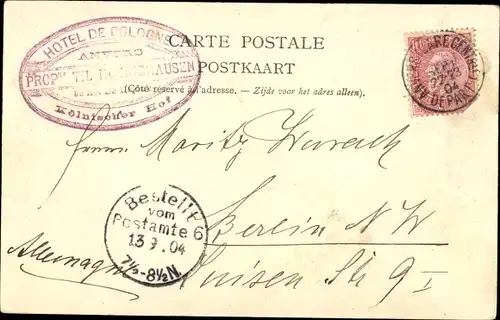 HOTEL DE COLOGNE
ANVERS
PROPRE
Kölnischer Hof
CARTE POSTALE
POSTKAART
(Côté réservé à l'adresse. - Zijde voor het adres alleen).
10
04
DEPART
Herrn Moritz
Bestellt
vom
Postamte 6
13 9. 04
7½-8½N.
Berlin N W
Allemagne
Luisen Str 9 I